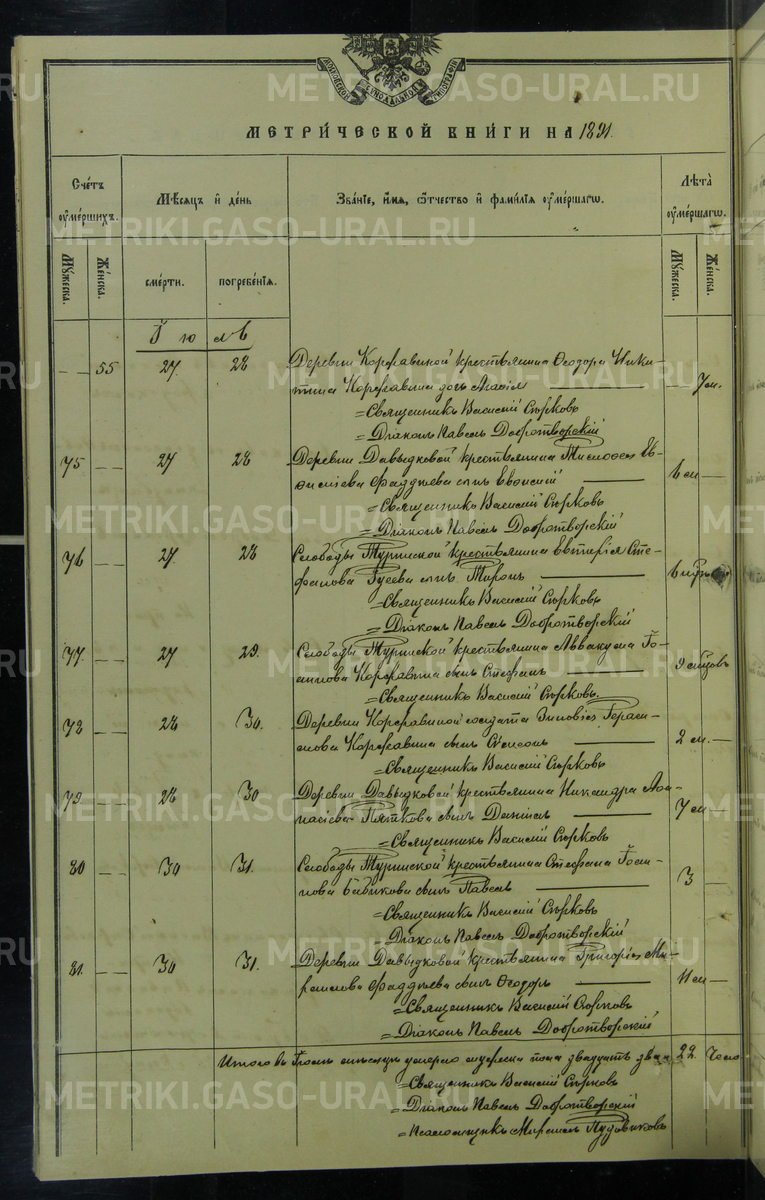 МЕТРИЧЕСКОЙ КНИГИ НА 1891.
Счетъ умершихъ.
Мѣсяцъ и день
Званіе, имя, отчество и фамилія умершаго.
Лѣта умершаго.
Мужеска.
Женска.
смерти.
погребенія.
Мужеска.
Женска.
Іюль
55 27 28 Деревни Коркавиной крестьянина Ѳеодора Ники-
тина Коркавина дочь 7 м.
=Священникъ Василій Сѣрковъ
=Діаконъ Павелъ Добротворскій
75 27 28 Деревни Давыдковой крестьянина
Фаддѣева сынъ 6 м
=Священникъ Василій Сѣрковъ
=Діаконъ Павелъ Добротворскій
76 27. 28 Слободы Туринской крестьянина Сте-
фанова Гусева сынъ Миронъ 6
=Священникъ Василій Сѣрковъ
=Діаконъ Павелъ Добротворскій
77. 27 29. Слободы Туринской крестьянина Аввакума Іо-
аннова Коркавина сынъ Стефанъ 9 мѣсяцовъ
=Священникъ Василій Сѣрковъ.
78 28 30. Деревни Коркавиной солдата Зиновія Гераси-
мова Коркавина сынъ Сѵмеонъ 2 м.
=Священникъ Василій Сѣрковъ
79 28 30 Деревни Давыдковой крестьянина Никандра Аѳа-
насіева Пяткова сынъ Даніилъ 7 м
=Священникъ Василій Сѣрковъ
80 30 31. Слободы Туринской крестьянина Стефана Іоан-
нова Бабикова сынъ Павелъ 3
=Священникъ Василій Сѣрковъ
Діаконъ Павелъ Добротворскій
81. 30 31. Деревни Давыдковой крестьянина Григорія
Фаддѣева сынъ Ѳеодоръ 11 м
=Священникъ Василій Сѣрковъ
=Діаконъ Павелъ Добротворскій
Итого въ Іюлѣ мѣсяцѣ умерло мужеска пола двадцать два 22. Чело
=Священникъ Василій Сѣрковъ
=Діаконъ Павелъ Добротворскій
=Псаломщикъ Пудовиковъ
METRIKI.GASO-URAL.RU